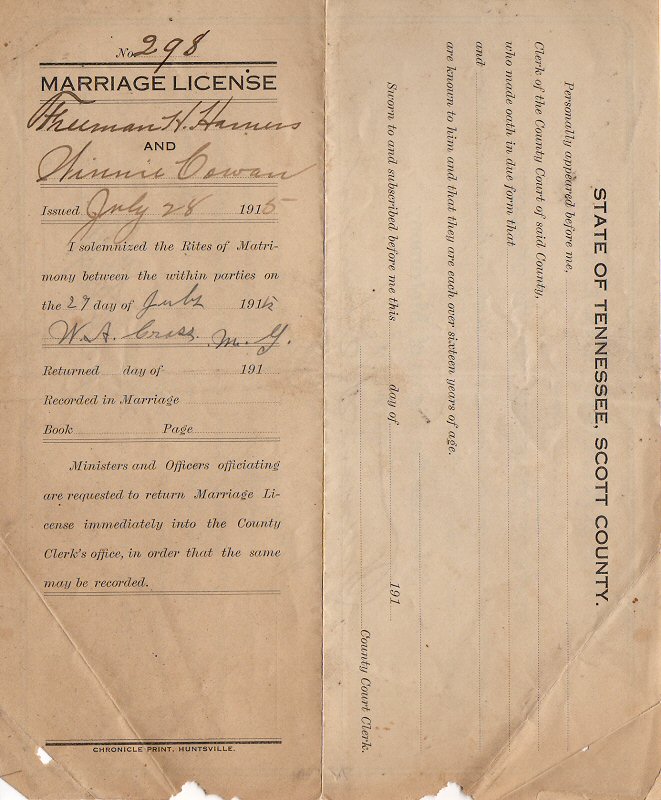 No. 298
MARRIAGE LICENSE
Freeman H. Hamers
AND
Winnie Cowan
Issued July 28 1915
I solemnized the Rites of Matri-
mony between the within parties on
the 29 day of July 1915
W. A. Cross. M. G.
Returned day of 191
Recorded in Marriage
Book Page
Ministers and Officers officiating
are requested to return Marriage Li-
cense immediately into the County
Clerk's office, in order that the same
may be recorded.
CHRONICLE PRINT, HUNTSVILLE.
STATE OF TENNESSEE, SCOTT COUNTY.
Personally appeared before me,
Clerk of the County Court of said County,
who made oath in due form that
and
are known to him and that they are each over sixteen years of age.
Sworn to and subscribed before me this day of 191
County Court Clerk.